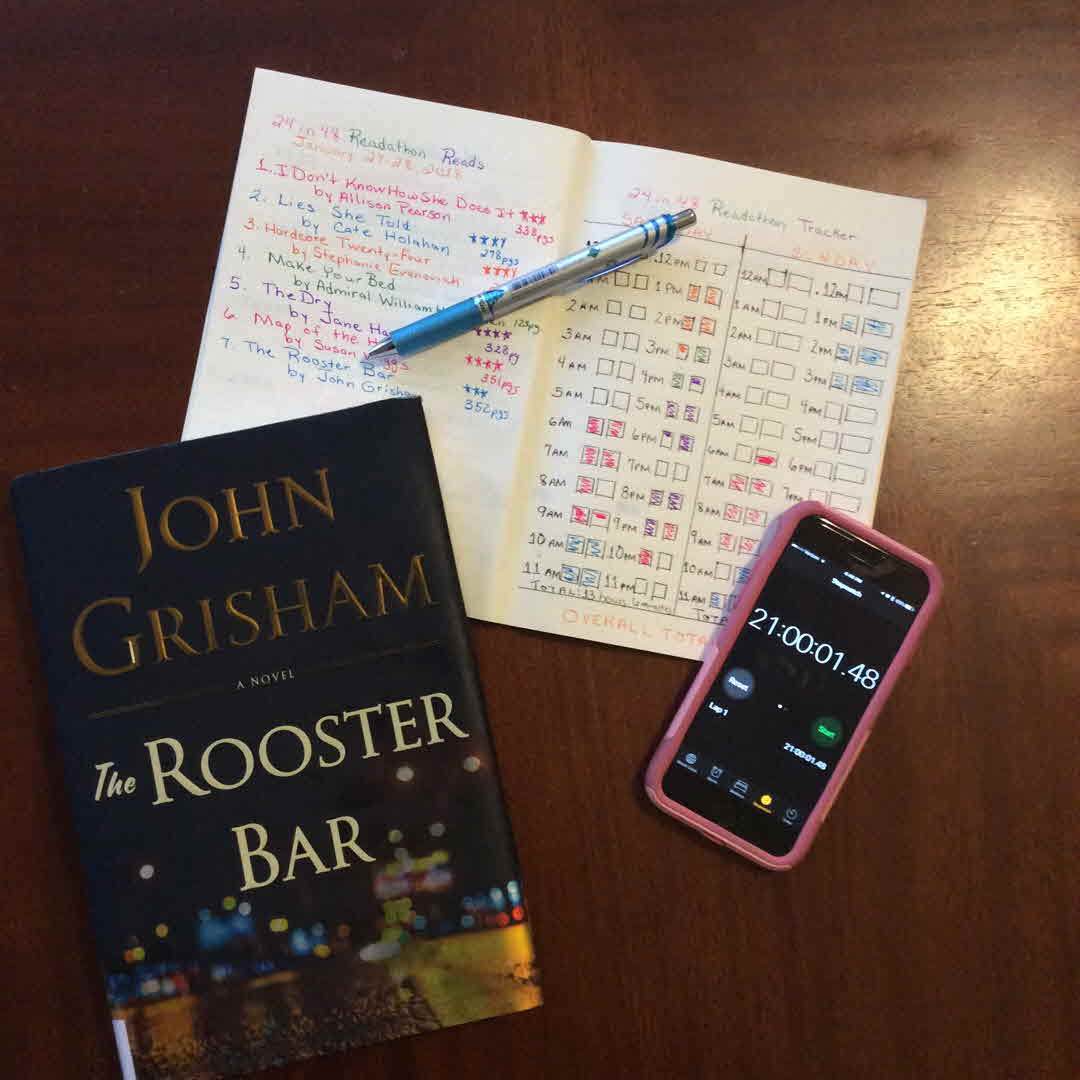 24 in 48 Readathon Reads
January 27-28, 2018
1. I Don't Know How She Does It ***
by Allison Pearson
338pgs
2. Lies She Told
by Cate Holahan
278pgs
3. Hardcore Twenty-Four
by Stephanie Evanovich
4. Make Your Bed
by Admiral William
125pg
5. The Dry
by Jane
****
328pg
6. Map of the
by Susan
****
351pgs
7. The Rooster Bar
by John Grisha
***
352pgs
24 in 48 Readathon Tracker
12PM
1PM
2AM 2PM
3AM 3PM
4AM 4PM
5AM 5PM
6AM 6PM
7AM 7PM
8AM 8PM
9AM 9PM
10AM 10PM
11AM 11PM
TOTAL: 13 hours
SUNDAY
12AM 12PM
1AM 1PM
2AM 2PM
3AM 3PM
4AM 4PM
5AM 5PM
6AM 6PM
7AM
8AM
9AM
10A
11AM
OVERALL TOTA
JOHN
GRISHAM
A NOVEL
The ROOSTER
BAR
Stopwatch
21:00:01.48
Reset
Start
Lap 1
21:00:01.48